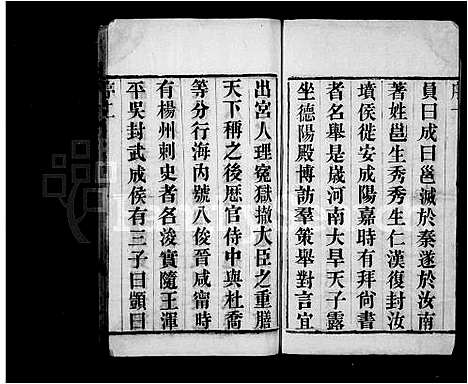 員曰成曰邕滅於秦遂於汝南
著姓邕生秀秀生仁漢復封汝
墳侯徙安成陽嘉時有拜尙書
者名舉是嵗河南大旱天子露
坐德陽殿博訪羣策舉對言宜
出宮人理寃獄撤大臣之重膳
天下稱之後厯官侍中與杜喬
等分行海內號八俊晉咸甯時
有楊州刺史者名浚實隨王渾
平吳封武成侯有三子曰顗曰